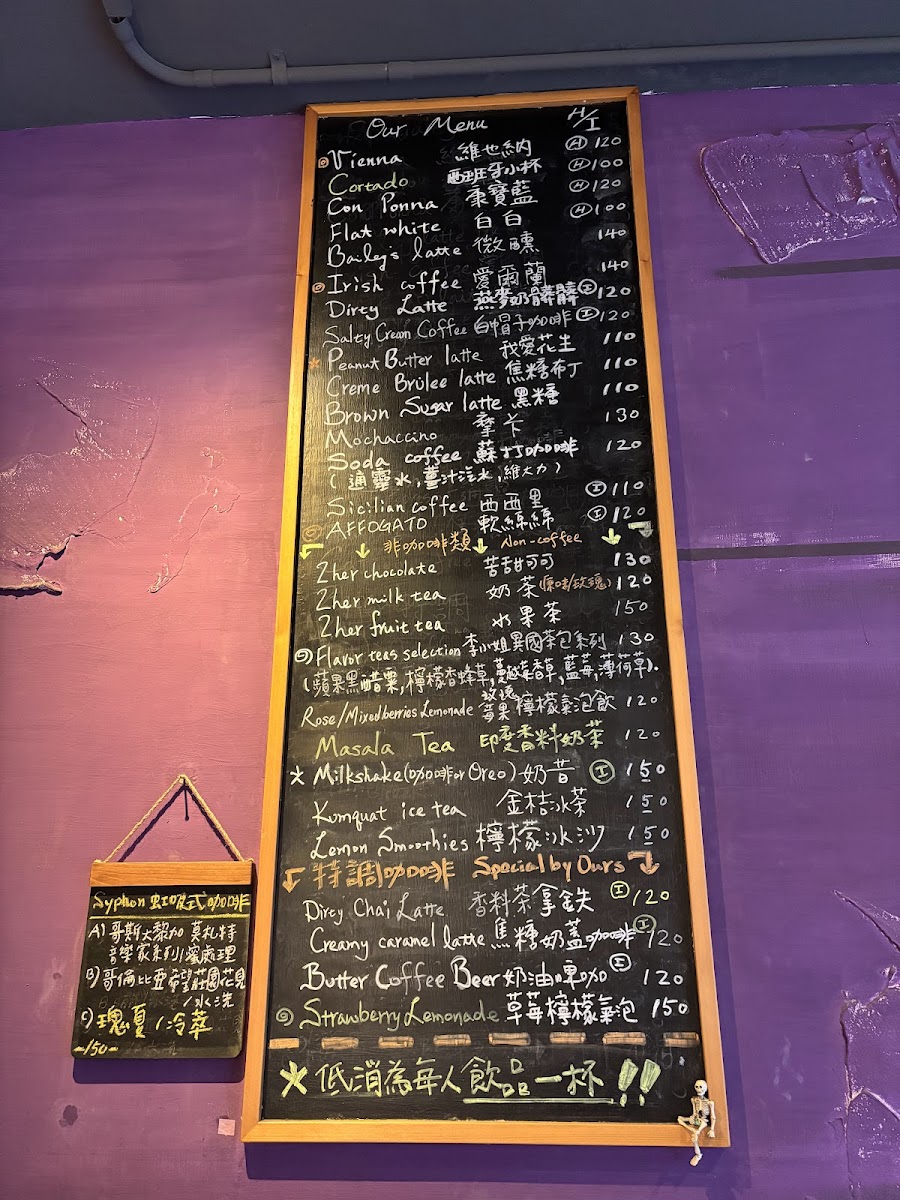 Our Menu H/I
Vienna 維也納 Ⓗ120
Cortado 西班牙小杯 Ⓗ100
Con Ponna 康寶藍 Ⓗ120
Flat white 白白 Ⓗ100
Bailey's latte 微醺 140
Irish coffee 愛爾蘭 140
Dirty Latte 燕麥奶髒髒 Ⓘ120
Salty Cream Coffee 白帽子咖啡 Ⓘ120
Peanut Butter latte 我愛花生 110
Creme Brulee latte 焦糖布丁 110
Brown Sugar latte 黑糖 110
Mochaccino 摩卡 130
Soda coffee 蘇打咖啡 120
(通靈水,薑汁汽水,維大力)
Sicilian coffee 西西里 Ⓘ110
AFFOGATO 軟綿綿 Ⓘ120
非咖啡類 Non-coffee
2her chocolate 苦甜可可 130
2her milk tea 奶茶(原味/玫瑰) 120
2her fruit tea 水果茶 150
Flavor teas selection 李小姐異國茶包系列 130
(蘋果黑醋栗,檸檬香蜂草,蔓越莓香草,藍莓,薄荷草).
Rose/Mixed berries Lemonade 玫瑰莓果檸檬氣泡飲 120
Masala Tea 印度香料奶茶 120
* Milkshake(咖啡or Oreo)奶昔 Ⓘ 150
Kumquat ice tea 金桔冰茶 150
Lemon Smoothies 檸檬冰沙 150
特調咖啡 Special by Ours
Dirty Chai Latte 香料茶拿鐵 Ⓘ120
Creamy caramel latte 焦糖奶蓋咖啡 Ⓘ120
Butter Coffee Beer 奶油啤咖 Ⓘ 120
Strawberry Lemonade 草莓檸檬氣泡 150
* 低消為每人飲品一杯!!
Syphon 虹吸式咖啡
A) 哥斯大黎加 莫札特
音樂家系列/蜜處理
B) 哥倫比亞希望莊園花見
/水洗
C) 瑰夏/冷萃
-150-